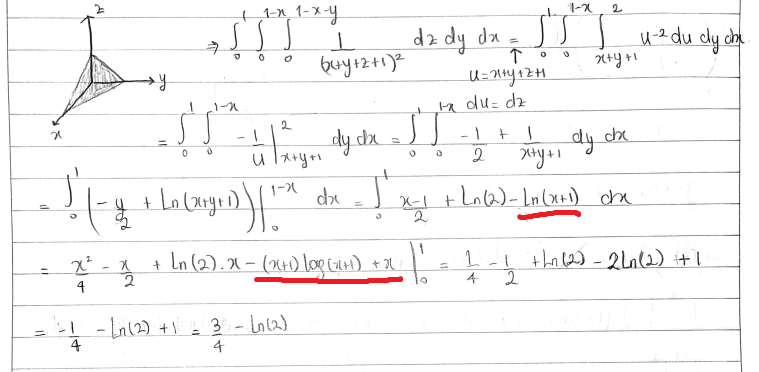 z
y
x
⇒ ∫₀¹ ∫₀^{1-x} ∫₀^{1-x-y} 1/(x+y+z+1)² dz dy dx = ∫₀¹ ∫₀^{1-x} ∫_{x+y+1}^{2} u⁻² du dy dx
↑
u=x+y+z+1
du=dz
= ∫₀¹ ∫₀^{1-x} -1/u |_{x+y+1}^{2} dy dx = ∫₀¹ ∫₀^{1-x} -1/2 + 1/(x+y+1) dy dx
= ∫₀¹ (-y/2 + Ln(x+y+1)) |₀^{1-x} dx = ∫₀¹ (x-1)/2 + Ln(2) - Ln(x+1) dx
= x²/4 - x/2 + Ln(2).x - (x+1) log(x+1) + x |₀¹ = 1/4 - 1/2 + Ln(2) - 2Ln(2) + 1
= -1/4 - Ln(2) + 1 = 3/4 - Ln(2)